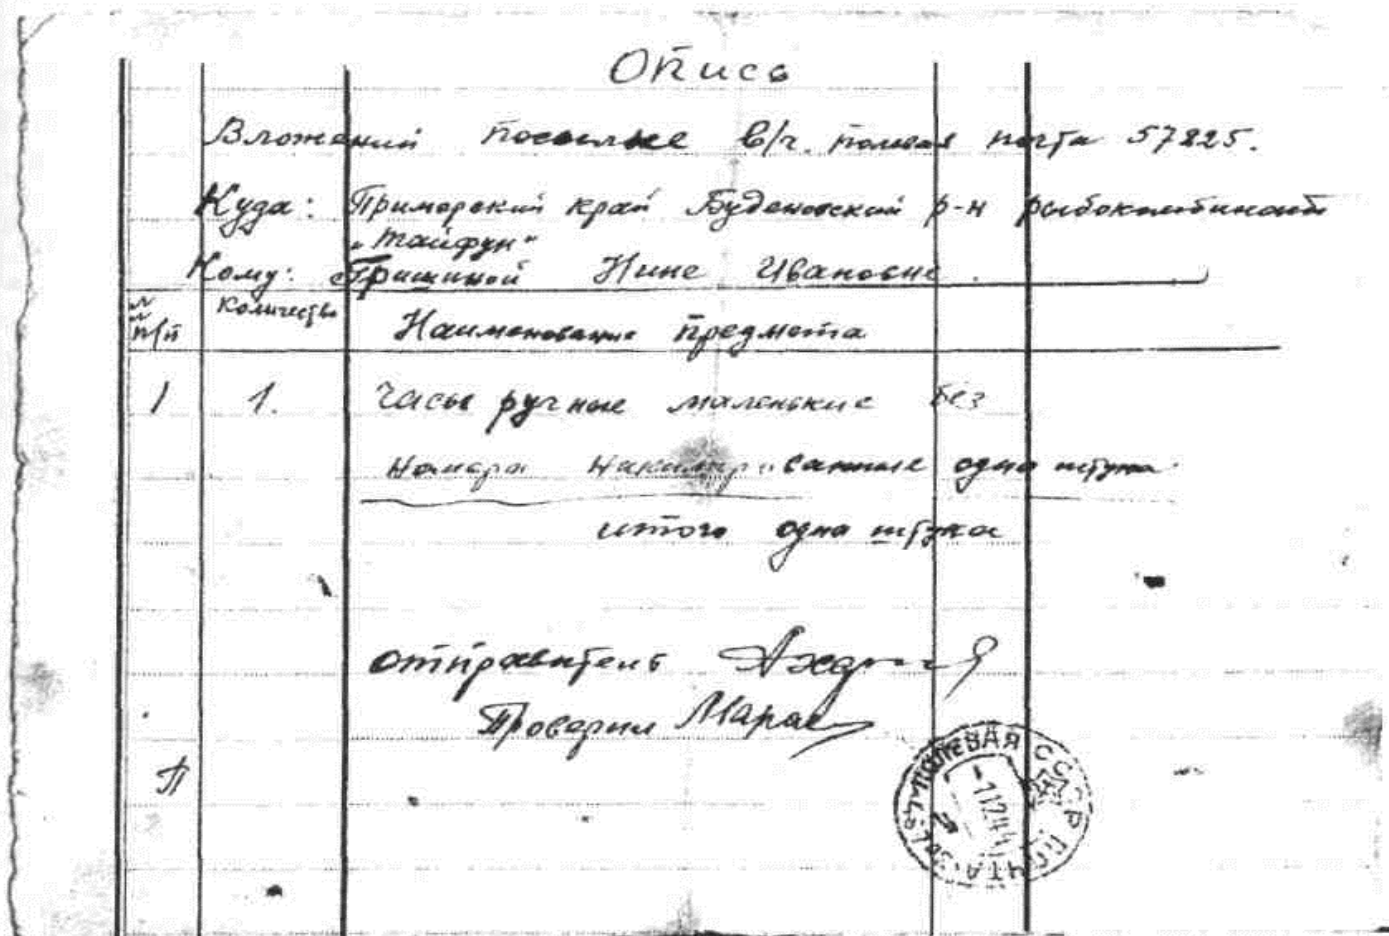 Опись
Вложений посылке в/ч. полевая почта 57825.
Куда: Приморский край Буденовский р-н рыбокомбинат
"Тайфун"
Кому: Гришиной Нине Ивановне.
№№ п/п
Количество
Наименование предмета
1 1. Часы ручные маленькие без
номера никелированные одна штука.
итого одна штука
отправитель
Проверил
П
ПОЛЕВАЯ СССР ПОЧТА